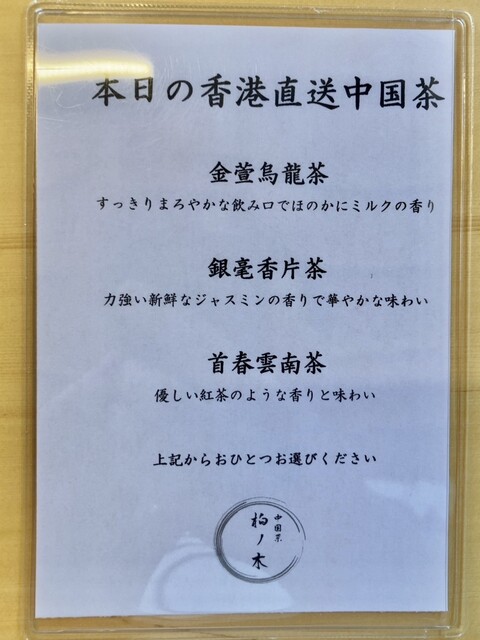 本日の香港直送中国茶
金萱烏龍茶
すっきりまろやかな飲み口でほのかにミルクの香り
銀毫香片茶
力強い新鮮なジャスミンの香りで華やかな味わい
首春雲南茶
優しい紅茶のような香りと味わい
上記からおひとつお選びください
中国茶
柏ノ木